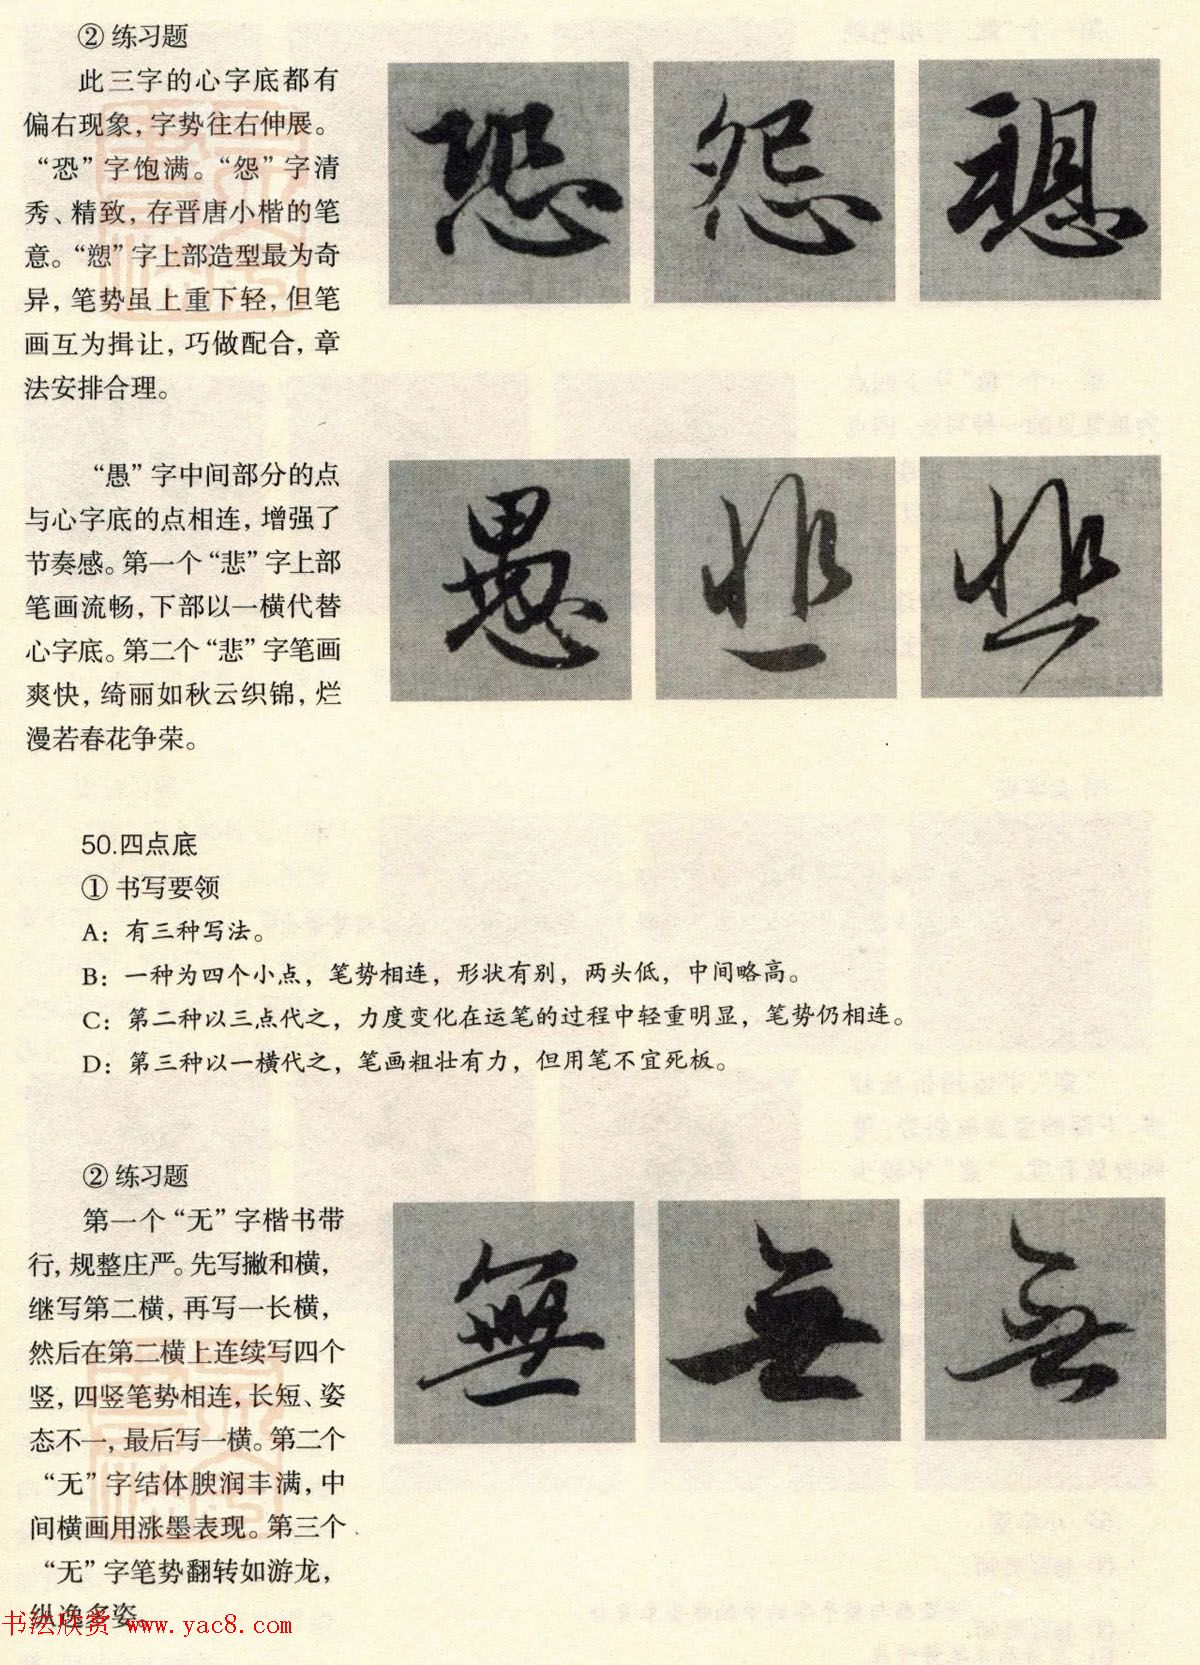 ② 练习题
此三字的心字底都有
偏右现象，字势往右伸展。
“恐”字饱满。“怨”字清
秀、精致，存晋唐小楷的笔
意。“愬”字上部造型最为奇
异，笔势虽上重下轻，但笔
画互为揖让，巧做配合，章
法安排合理。
恐 怨
“愚”字中间部分的点
与心字底的点相连，增强了
节奏感。第一个“悲”字上部
笔画流畅，下部以一横代替
心字底。第二个“悲”字笔画
爽快，绮丽如秋云织锦，烂
漫若春花争荣。
愚 悲 悲
50.四点底
① 书写要领
A：有三种写法。
B：一种为四个小点，笔势相连，形状有别，两头低，中间略高。
C：第二种以三点代之，力度变化在运笔的过程中轻重明显，笔势仍相连。
D：第三种以一横代之，笔画粗壮有力，但用笔不宜死板。
② 练习题
第一个“无”字楷书带
行，规整庄严。先写撇和横，
继写第二横，再写一长横，
然后在第二横上连续写四个
竖，四竖笔势相连，长短、姿
态不一，最后写一横。第二个
“无”字结体腴润丰满，中
间横画用涨墨表现。第三个
“无”字笔势翻转如游龙，
纵逸多姿。
無 無 無
书法欣赏 www.yac8.com